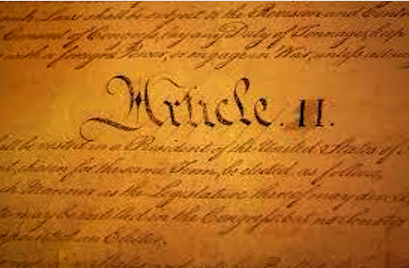 such Laws shall be subject to the Revision and Cont
Consent of Congress, lay any Duty of Tonnage, keep
with a foreign Power, or engage in War, unless actua
Article. II.
ll be vested in a President of the United States of
t, chosen for the same Term, be elected, as follows,
h Manner as the Legislature thereof may direct,
te may be entitled in the Congress: but no Senator
appointed an Elector.